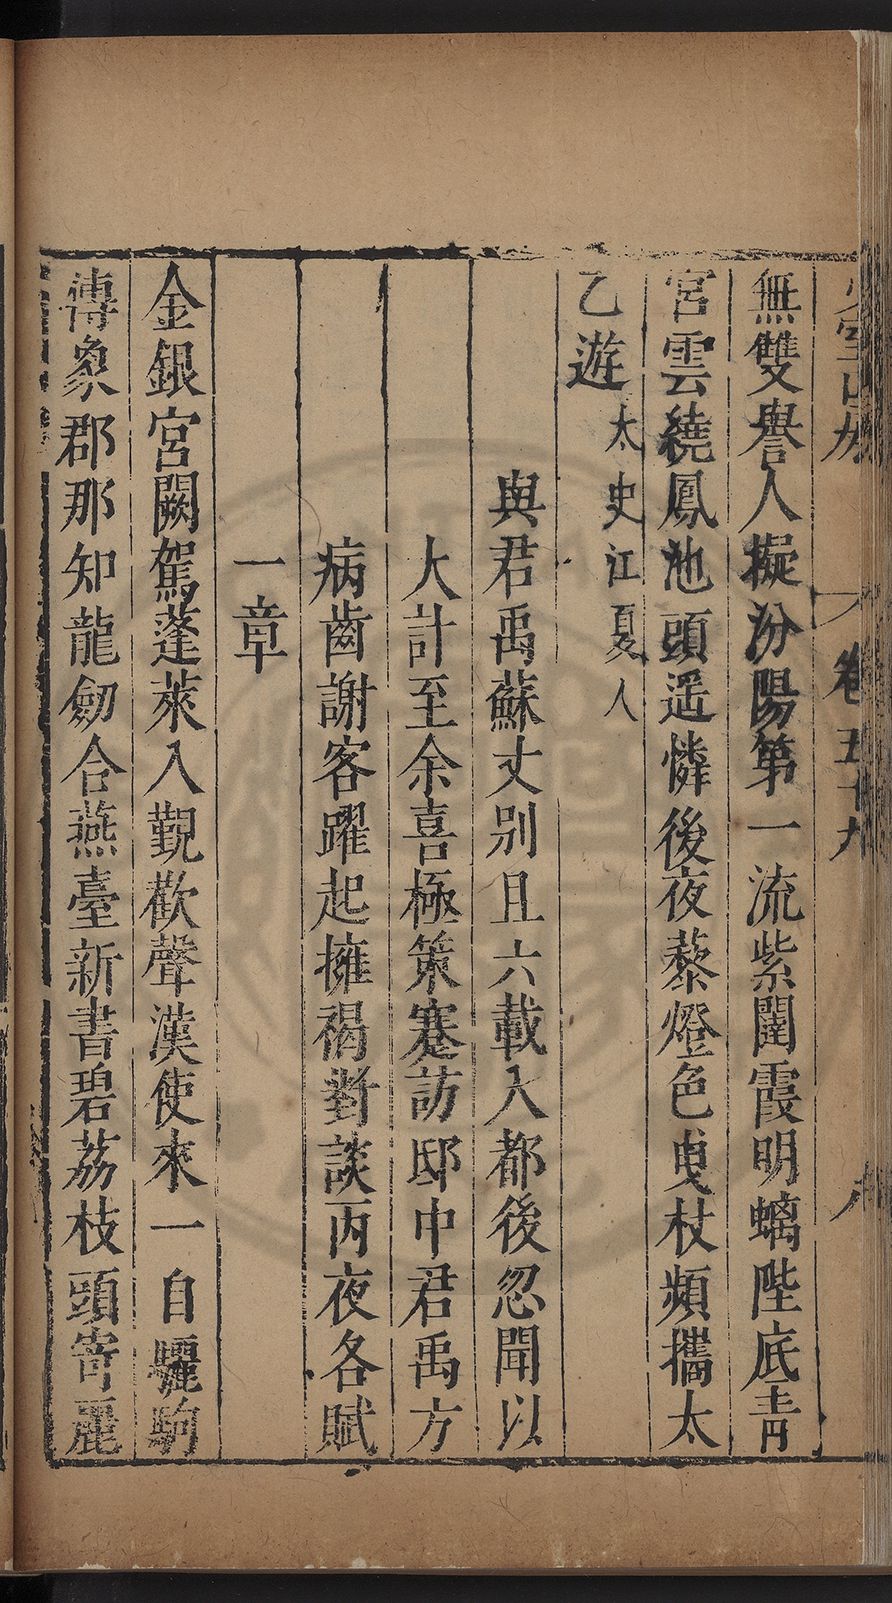 少室山房 卷五十九 八
無雙譽人擬汾陽第一流紫闥霞明螭陛底青
宮雲繞鳳池頭遥憐後夜藜燈色曳杖頻攜太
乙遊太史江夏人
與君禹蘇丈别且六載入都後忽聞以
大計至余喜極策蹇訪邸中君禹方
病齒謝客躍起擁褐對談丙夜各賦
一章
金銀宮闕駕蓬萊入觐歡聲漢使來一自驪駒
傳象郡那知龍劒合燕臺新書碧荔枝頭寄麗